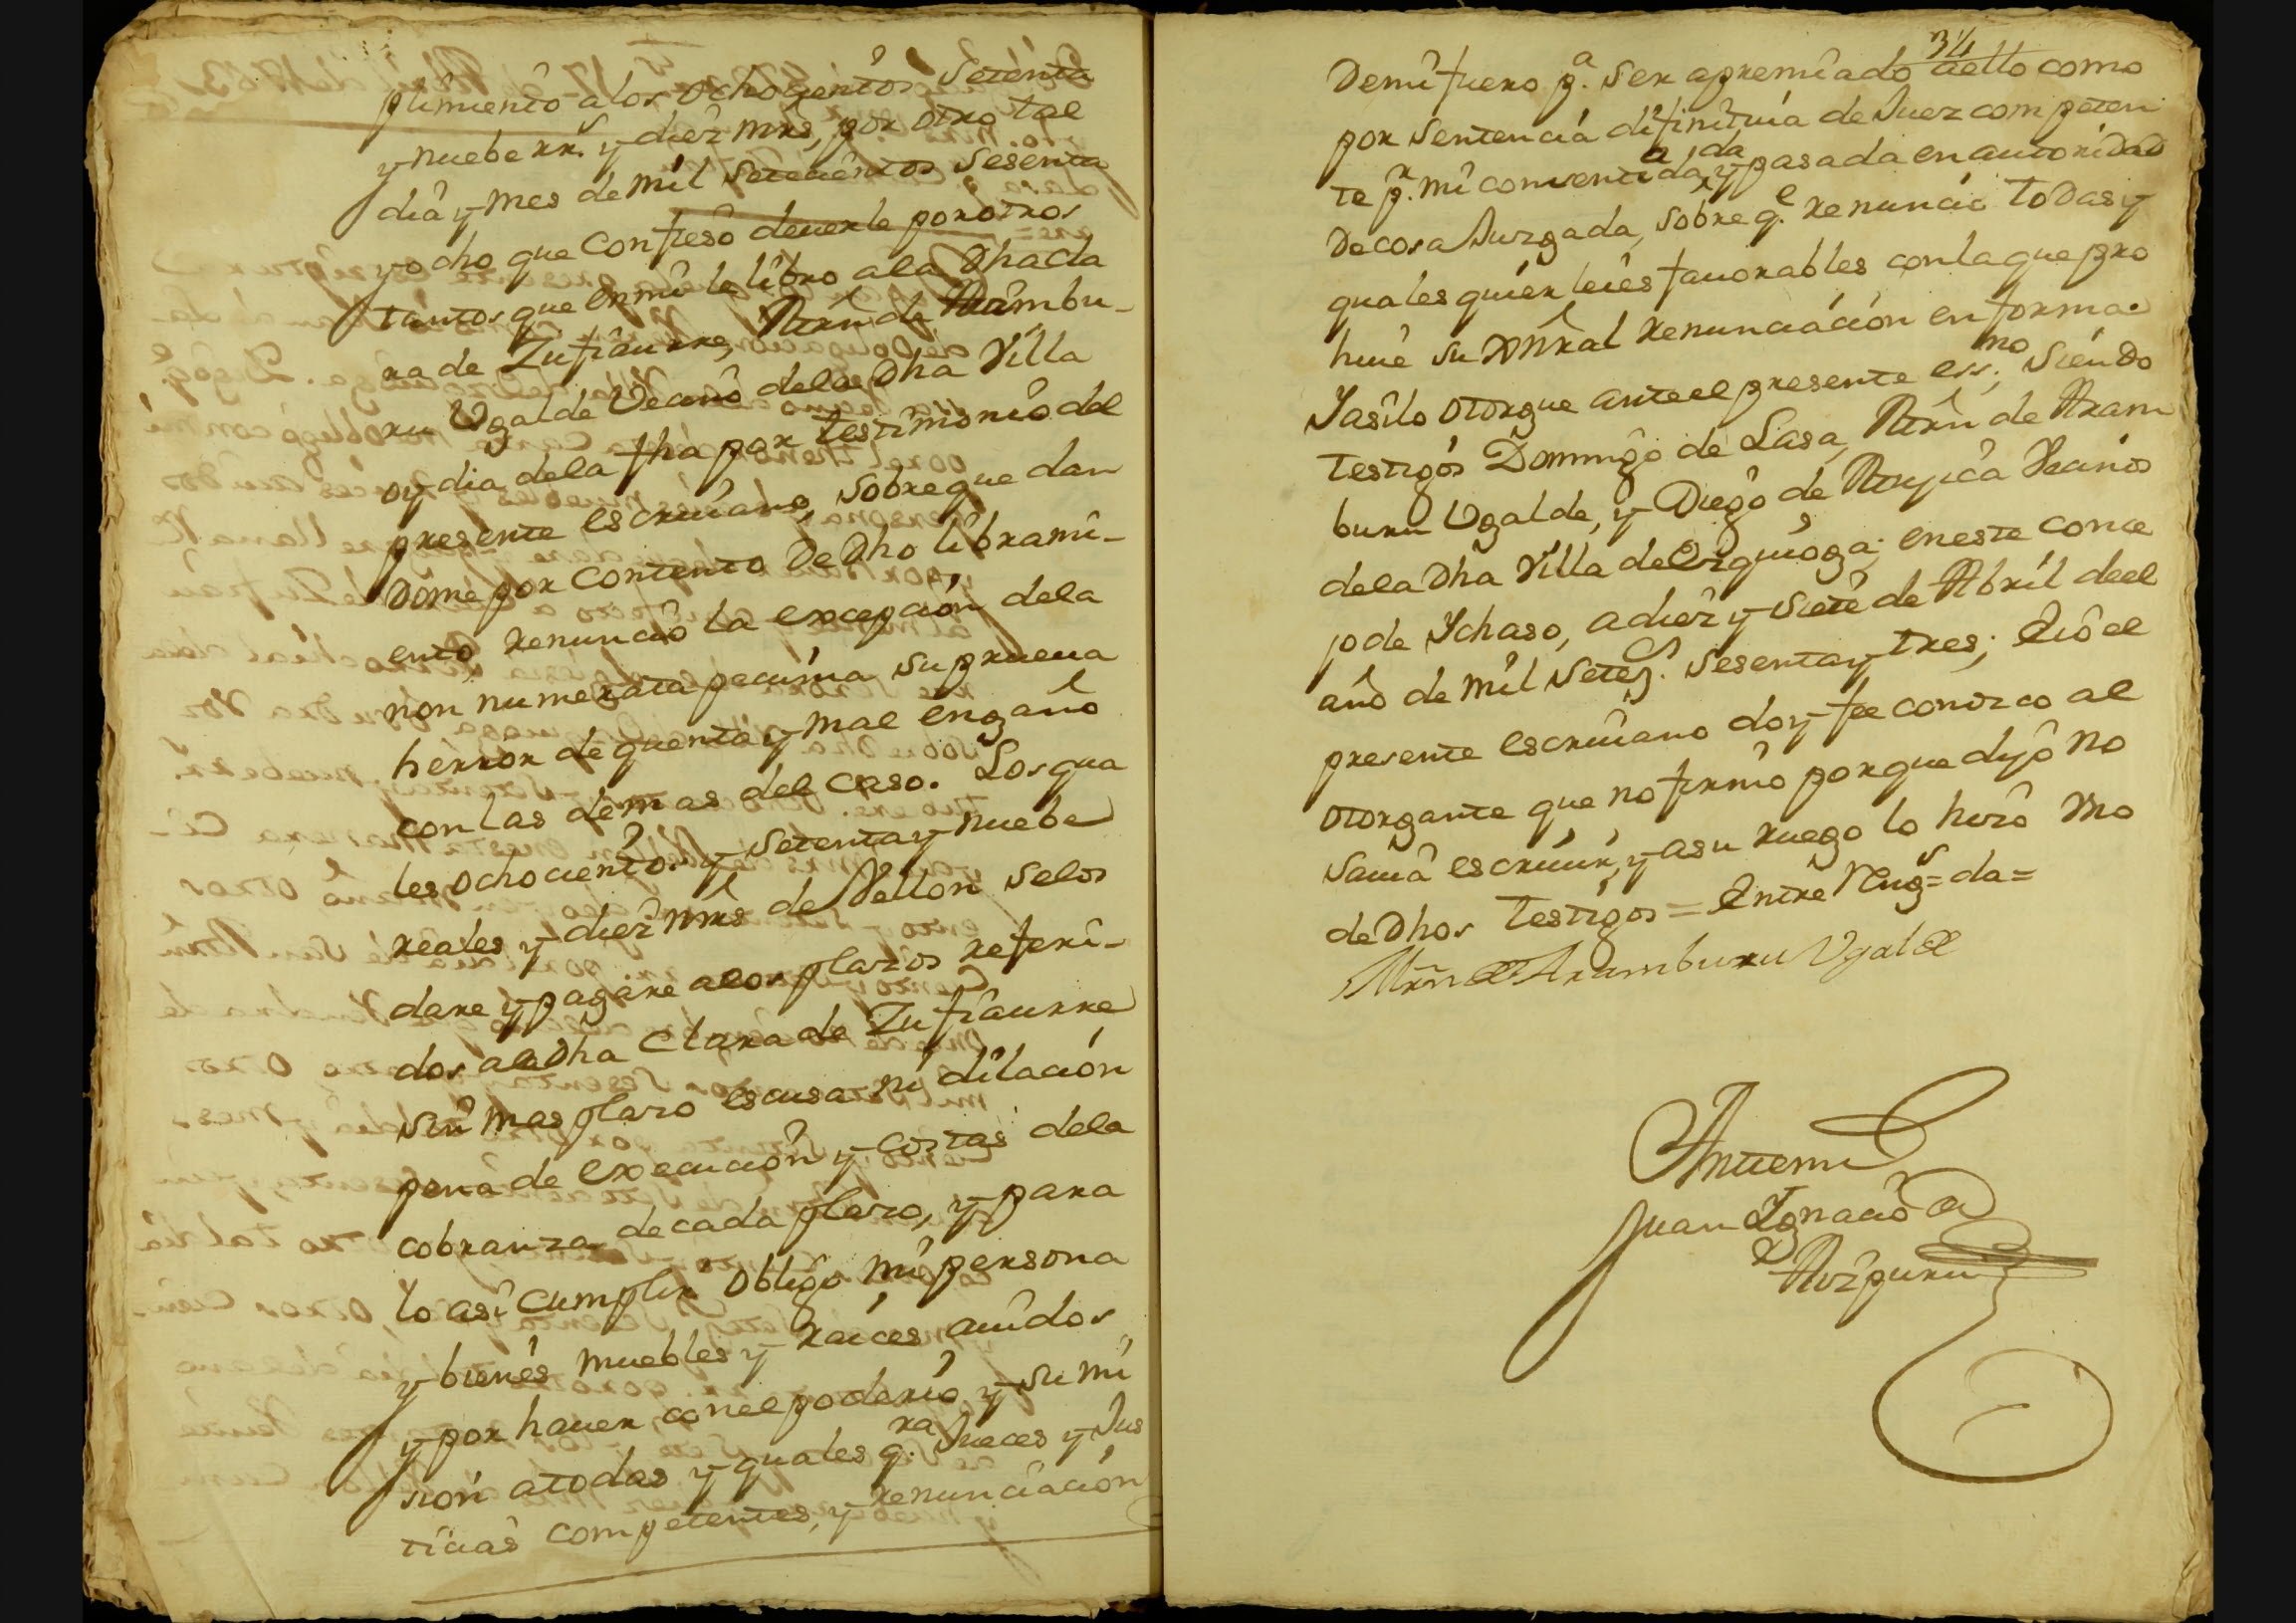 plimiento alos ochozientos Setenta
y nuebe rr.s y diez mrs, por otro tal
dia y mes de mil Setecientos Sesenta
y ocho que Confieso deuerle por otros
tantos que en mi le libro ala Dha Cla
ra de Zufiaurre, Mrn de Arambu-
ru Ugalde Vecino dela Dha Villa
oy dia dela fha por testimonio del
presente escriuano, sobre que dan
dome por Contento De Dho librami-
ento, renuncio la excepcion dela
non numerata pecunia su prueua
herror de quenta y mal engaño
con las demas del caso. Los qua
les ochocientos y setenta y nuebe
reales y diez mrs de Vellon selos
dare y pagare alos plazos referi-
dos ala Dha Clara de Zufiaurre
sin mas plazo escusa ni dilacion
pena de execucion y costas dela
cobranza de cada plazo, y para
lo asi cumplir obligo mi persona
y bienes muebles y raices auidos
y por hauer con el poderio y sumi
sion atodas y quales q.ra Jueces y Jus
ticias competentes, y renunciacion
34
De mi fuero p.a ser apremiado aello como
por Sentencia difinitiua de Juez competen
te p.r mi consentida, y pasada en autoridad
a da
De cosa Juzgada, sobre q.e renuncio todas y
quales quier leies fauorables con la que pro
hiue su Gnral renunciacion en forma.
Y asilo otorgue ante el presente ess.no, siendo
testigos Domingo de Lasa, Mrn de Aram
buru Ugalde, y Diego de Vecinos
dela Dha Villa de Ezquioga; en este conce
jo de Ychaso, a diez y siete de Abril deel
año de mil Setez.s sesenta y tres; E io el
presente escriuano doy fee conozco al
otorgante que no firmo porque dijo no
sauia escriuir, y asu ruego lo hizo Vno
de Dhos testigos = Entre Reng.s = da =
Mrn de Aramburu Vgalde
Antemi
Juan Ygnacio de
Aizpuru